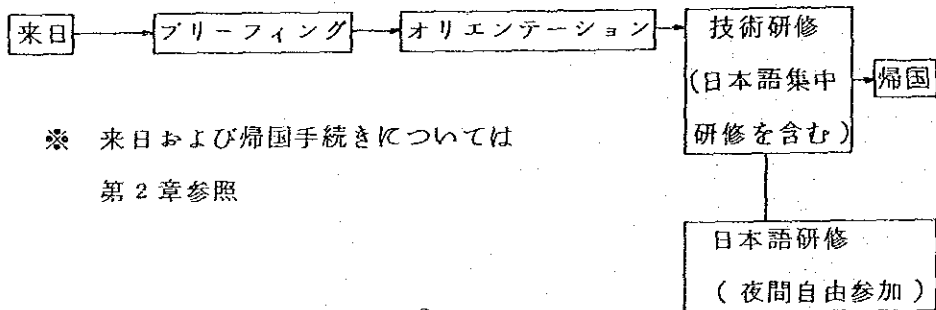 来日
ブリーフィング
オリエンテーション
技術研修
(日本語集中
研修を含む)
帰国
※ 来日および帰国手続きについては
第2章参照
日本語研修
(夜間自由参加)